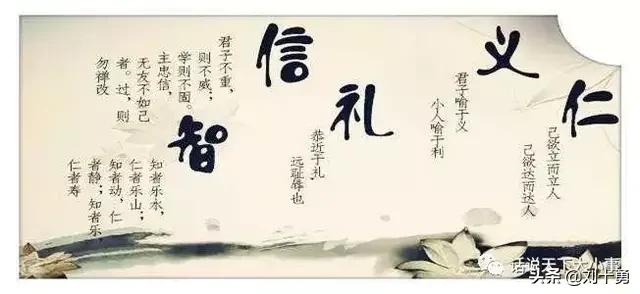 仁
己欲立而立人
己欲达而达人
义
君子喻于义
小人喻于利
礼
恭近于礼，
远耻辱也
信
君子不重，
则不威；
学则不固。
主忠信，
无友不如己
者。过，则
勿禅改
智
知者乐水，
仁者乐山；
知者动，仁
者静；知者乐，
仁者寿
话说天下大小事
头条@刘十勇